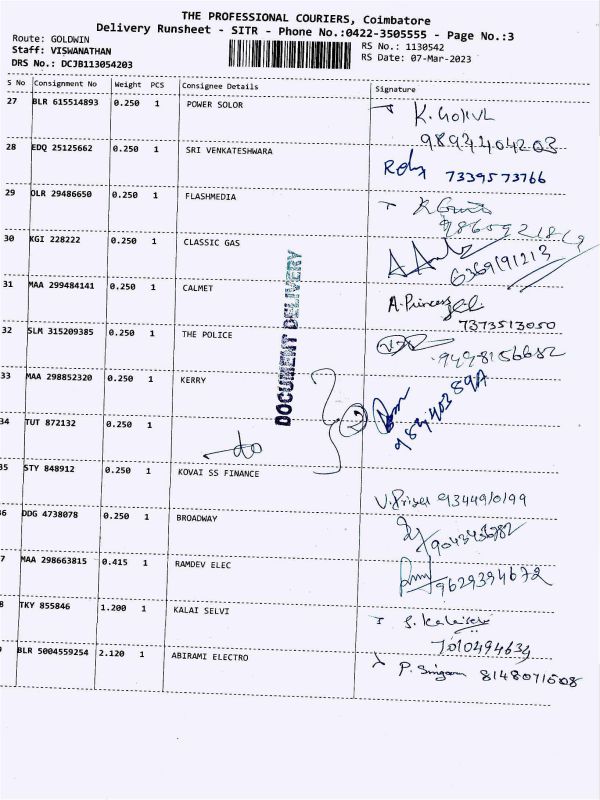 THE PROFESSIONAL COURIERS, Coimbatore
Delivery Runsheet - SITR - Phone No.:0422-3505555 - Page No.:3
Route: GOLDWIN
Staff: VISWANATHAN
DRS No.: DCJB113054203
RS No.: 1130542
RS Date: 07-Mar-2023
S No Consignment No Weight PCS Consignee Details Signature
27 BLR 615514893 0.250 1 POWER SOLOR
28 EDQ 25125662 0.250 1 SRI VENKATESHWARA
7339573766
29 OLR 29486650 0.250 1 FLASHMEDIA
30 KGI 228222 0.250 1 CLASSIC GAS
6369191213
31 MAA 299484141 0.250 1 CALMET
A. Princes
7373513050
32 SLM 315209385 0.250 1 THE POLICE
9498156682
33 MAA 298852320 0.250 1 KERRY
DOCUMENT DELIVERY
34 TUT 872132 0.250 1
do
35 STY 848912 0.250 1 KOVAI SS FINANCE
V. Priya 9344910199
36 DDG 4738078 0.250 1 BROADWAY
7 MAA 298663815 0.415 1 RAMDEV ELEC
9629394672
8 TKY 855846 1.200 1 KALAI SELVI
7010494634
9 BLR 5004559254 2.120 1 ABIRAMI ELECTRO
8148071508